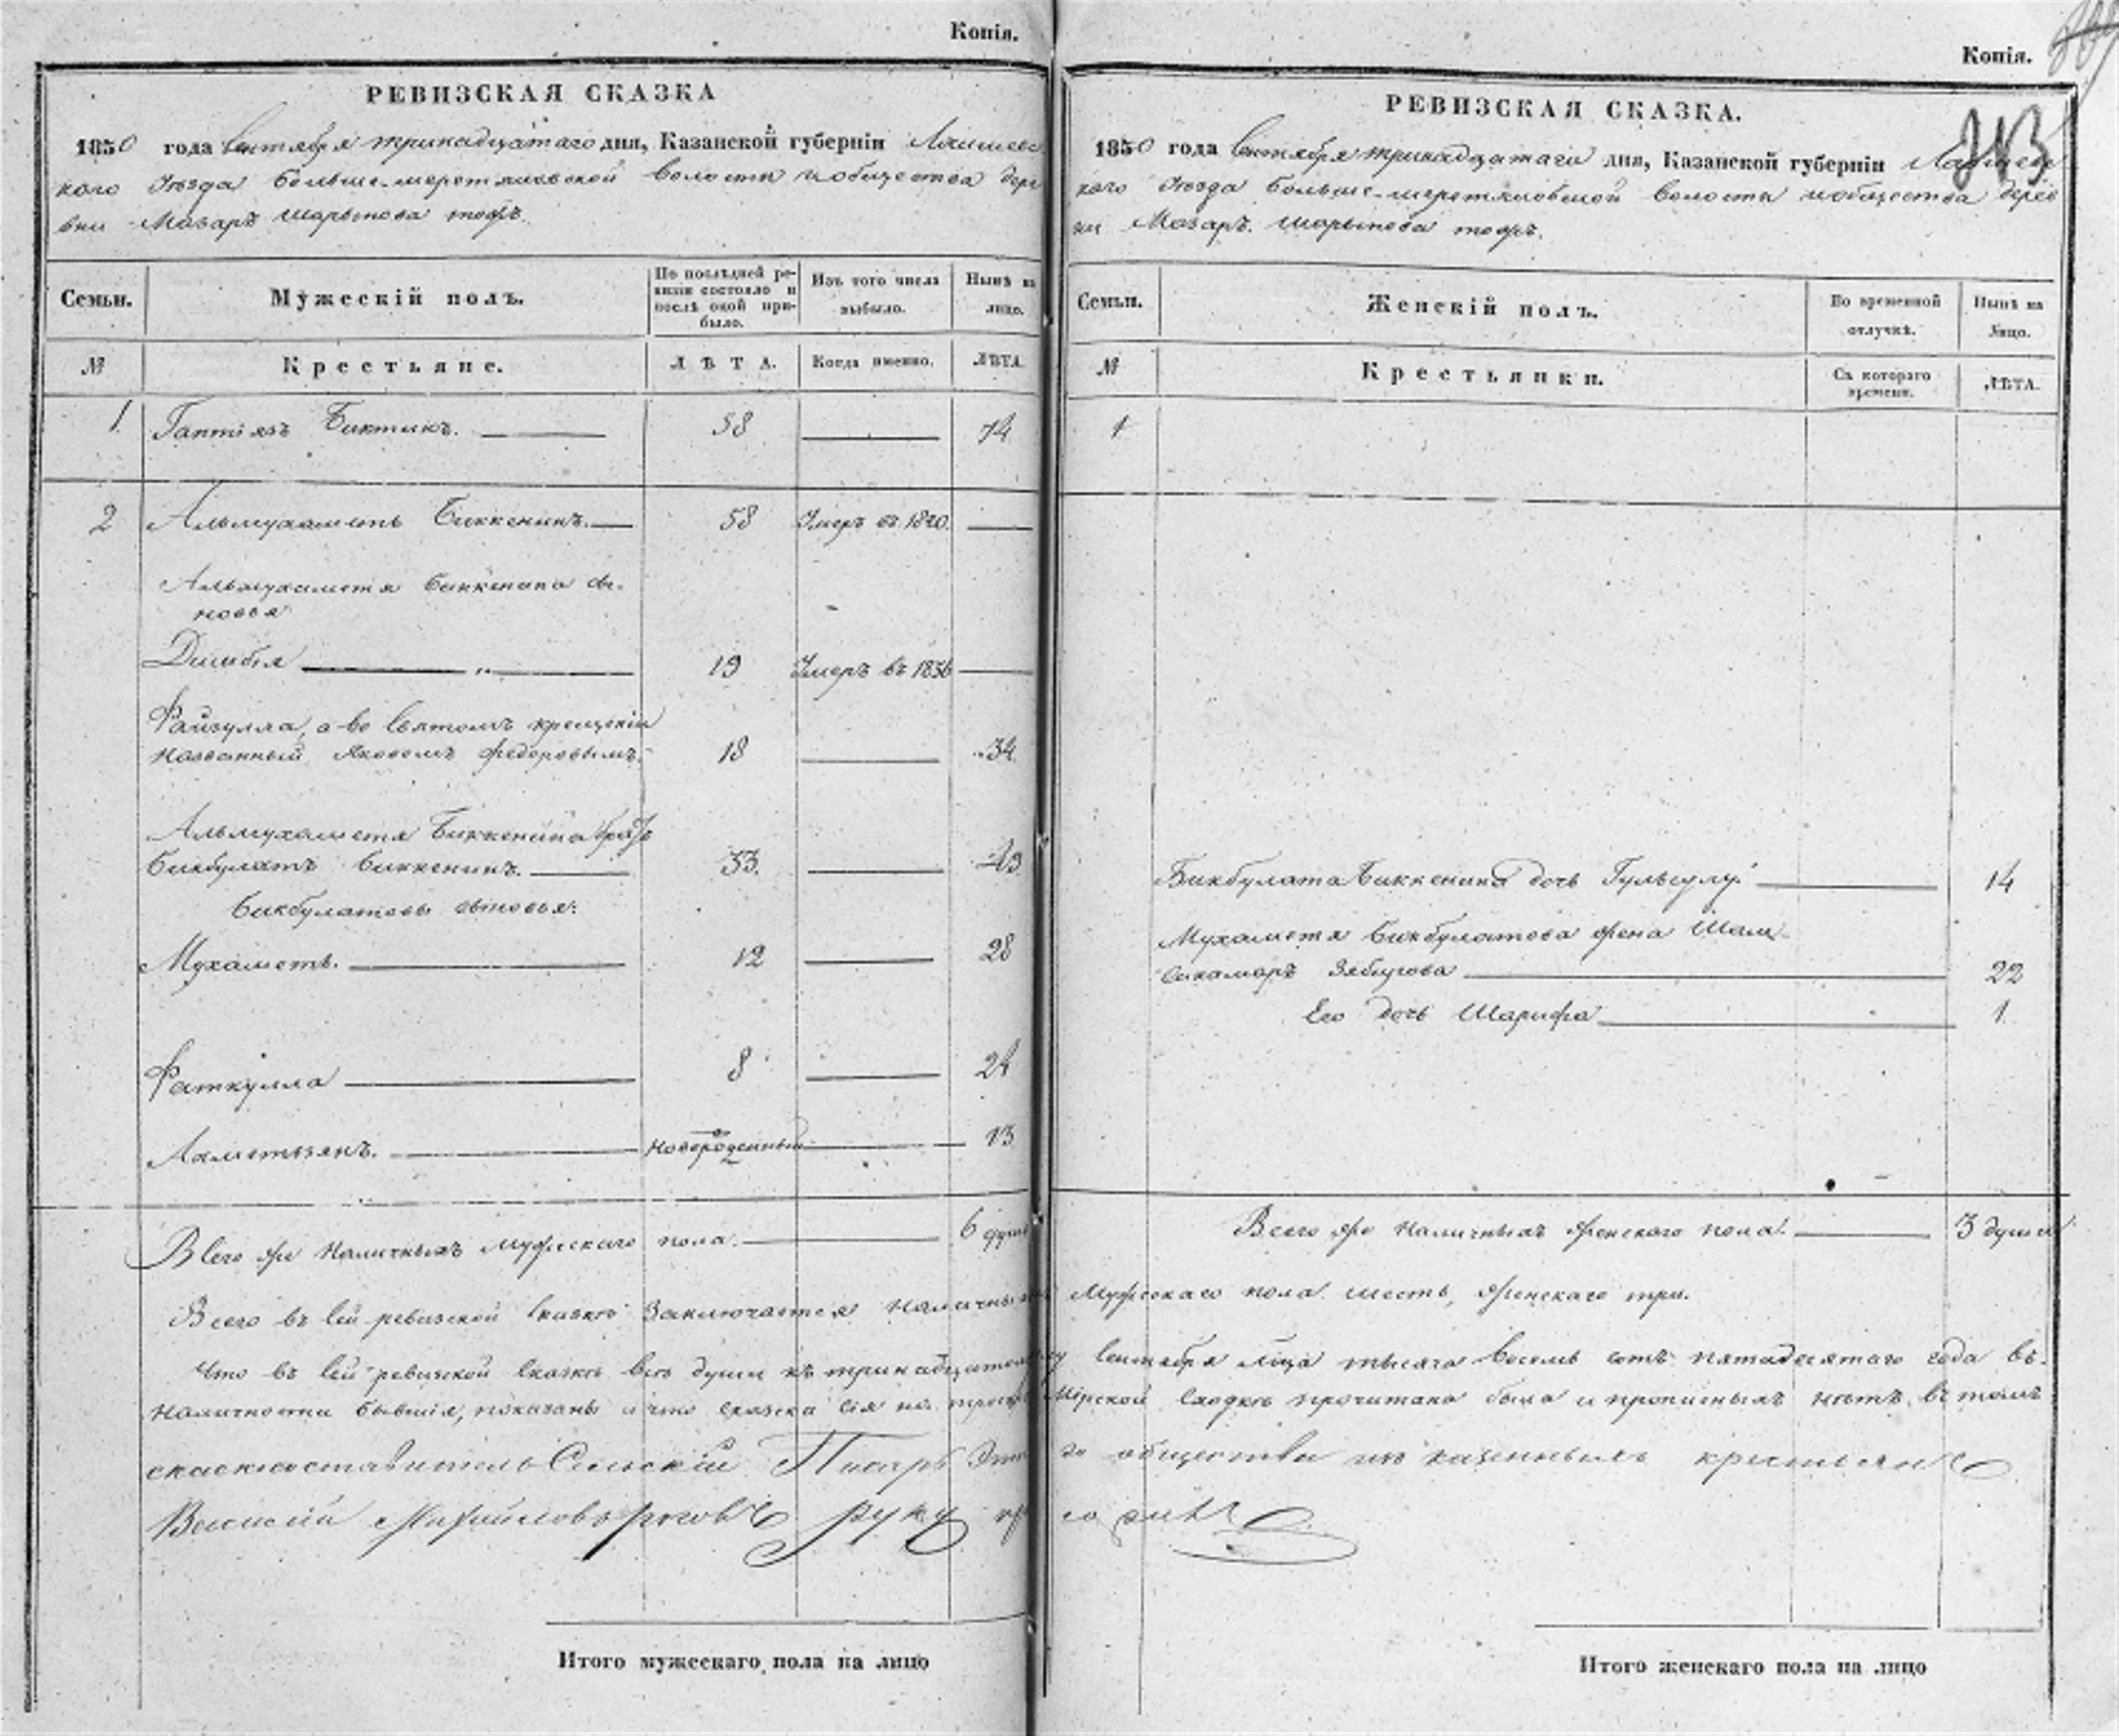 Копія.
РЕВИЗСКАЯ СКАЗКА
1850 года Сентября тринадцатаго дня, Казанской губерніи Лаишевс
каго Уѣзда Больше-меретяковской волости и общества дере
вни Мазаръ Шарыпова тожъ.
Семьи. Мужескій полъ. По послѣдней ре-визіи состояло и послѣ оной при-было. Изъ того числа выбыло. Нынѣ на лицо.
№ Крестьяне. ЛѢТА. Когда именно. ЛѢТА.
1 Биктинъ. 58 74
2 Альмухаметь Биккенинъ. 58 Умеръ въ 1840.
Альмухаметя Биккенина сы-
новья
19 Умеръ въ 1836
Файзулла, а во Святомъ крещеніи
названный Яковомъ Федоровымъ. 18 34
Альмухаметя Биккенина братъ
Бикбулатъ Биккенинъ. 33. 49
Бикбулатовы сыновья:
Мухаметь. 12 28
Фаткулла 8 24
Ахметзянъ. новорожденный 13
Всего же наличныхъ мужескаго пола. 6 душъ
Всего въ сей ревизской сказкѣ заключается наличныхъ
Что въ сей ревизской сказкѣ всѣ души къ тринадцатому
наличности бывшія, показаны и что сказка сія на
скаскосоставитель Сельскій Писарь Этаго
Василій Михайловъ руку
Итого мужескаго пола на лицо
Копія.
213
РЕВИЗСКАЯ СКАЗКА.
1850 года Сентября тринадцатаго дня, Казанской губерніи Лаишевс
каго Уѣзда Больше-меретяковской волости и общества дерев
ни Мазаръ. Шарыпова тожъ.
Семьи. Женскій полъ. Во временной отлучкѣ. Нынѣ на лицо.
№ Крестьянки. Съ котораго времени. ЛѢТА.
1
Бикбулата Биккенина дочь 14
Мухаметя Бикбулатова жена Шам-
сикамаръ 22
Его дочь Шарифа 1
Всего же наличныхъ женскаго пола. 3 души
Мужескаго пола шесть, женскаго три.
Сентября мѣсяца тысяча восемь сотъ пятидесятаго года въ
Мірской сходкѣ прочитана была и прописныхъ нѣтъ, въ томъ
общества изъ казенныхъ крестьянъ
Итого женскаго пола на лицо